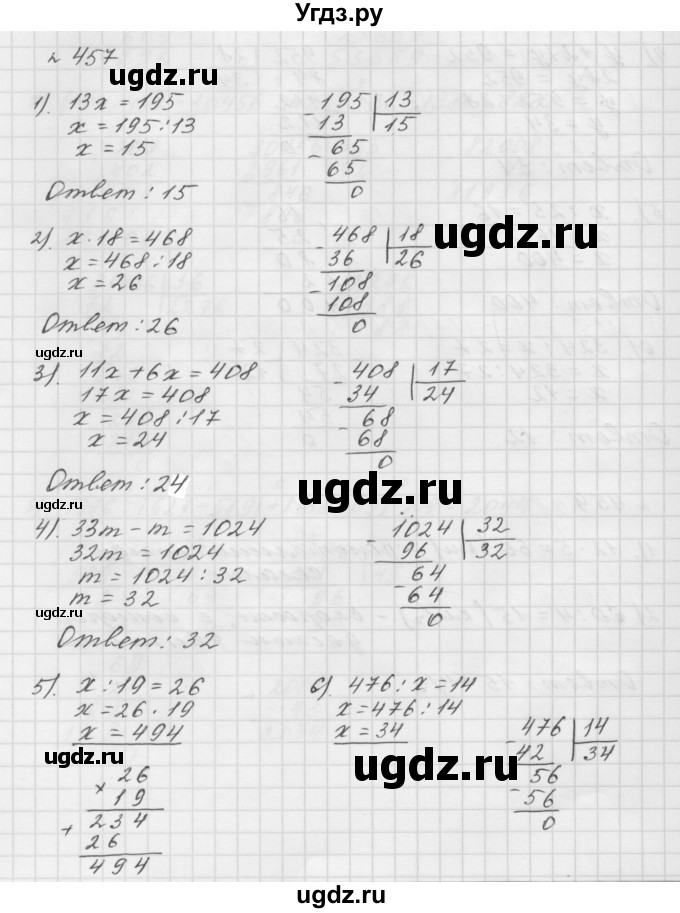 Угдз.ру
№ 457
1). 13x = 195
x = 195 : 13
x = 15
- 195 | 13
13 | 15
- 65
65
0
Ответ : 15
2). x · 18 = 468
x = 468 : 18
x = 26
- 468 | 18
36 | 26
- 108
108
0
Ответ : 26
3). 11x + 6x = 408
17x = 408
x = 408 : 17
x = 24
- 408 | 17
34 | 24
- 68
68
0
Ответ : 24
4). 33m - m = 1024
32m = 1024
m = 1024 : 32
m = 32
- 1024 | 32
96 | 32
- 64
64
0
Ответ : 32
5). x : 19 = 26
x = 26 · 19
x = 494
× 26
19
+ 234
26
494
6). 476 : x = 14
x = 476 : 14
x = 34
- 476 | 14
42 | 34
- 56
56
0
ugdz.ru
ugdz.ru
ugdz.ru
ugdz.ru
ugdz.ru
ugdz.ru
ugdz.ru
ugdz.ru
ugdz.ru
ugdz.ru
ugdz.ru
ugdz.ru